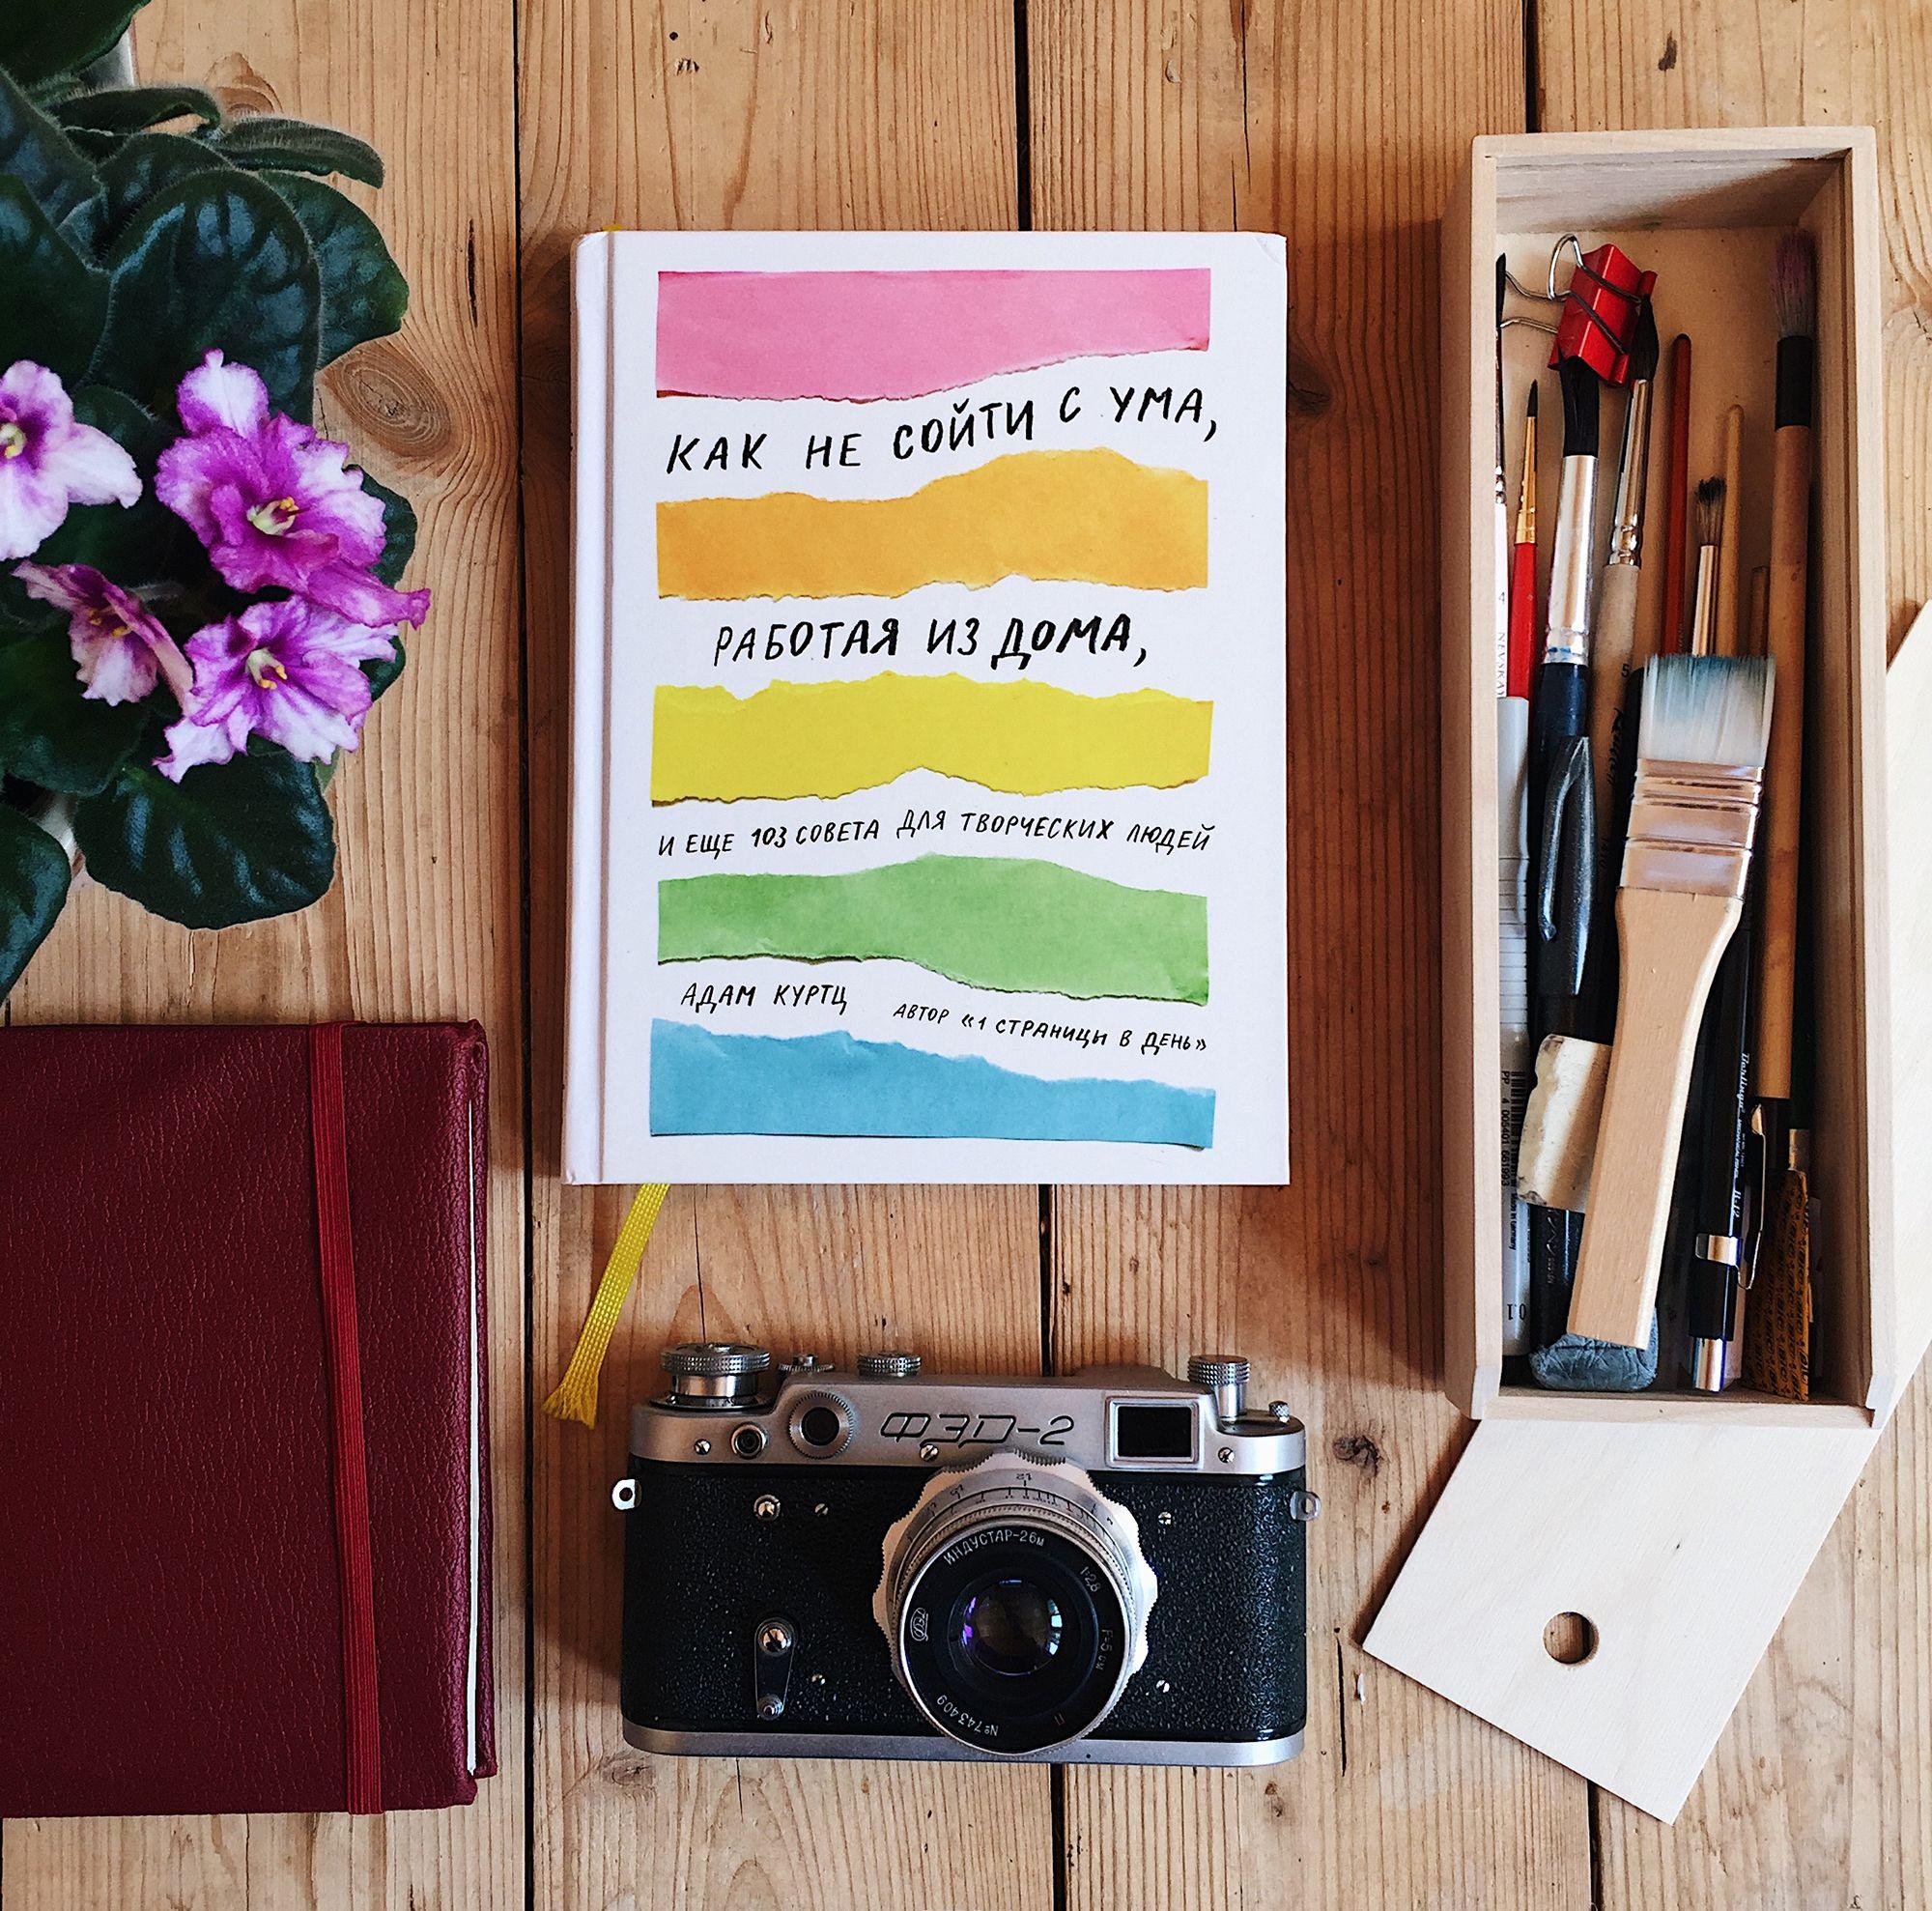 КАК НЕ СОЙТИ С УМА,
РАБОТАЯ ИЗ ДОМА,
И ЕЩЕ 103 СОВЕТА ДЛЯ ТВОРЧЕСКИХ ЛЮДЕЙ
АДАМ КУРТЦ
АВТОР «1 СТРАНИЦЫ В ДЕНЬ»
ФЭД-2
ИНДУСТАР-26м
1:2,8
F=5см
П
№743409
4
0.1